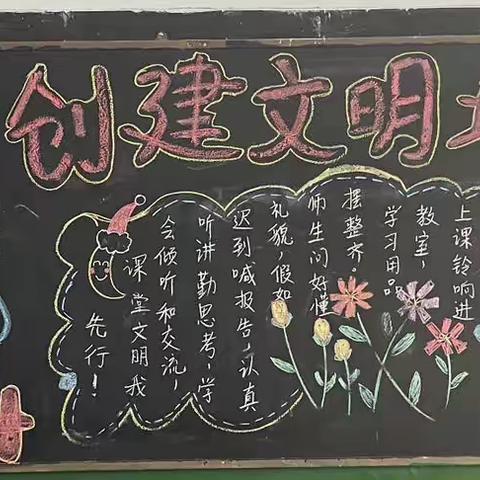 创建文明
上课铃响进
教室，
学习用品
摆整齐。
师生问好懂
礼貌，假如
迟到喊报告，认真
听讲勤思考，学
会倾听和交流，
课堂文明我
先行！